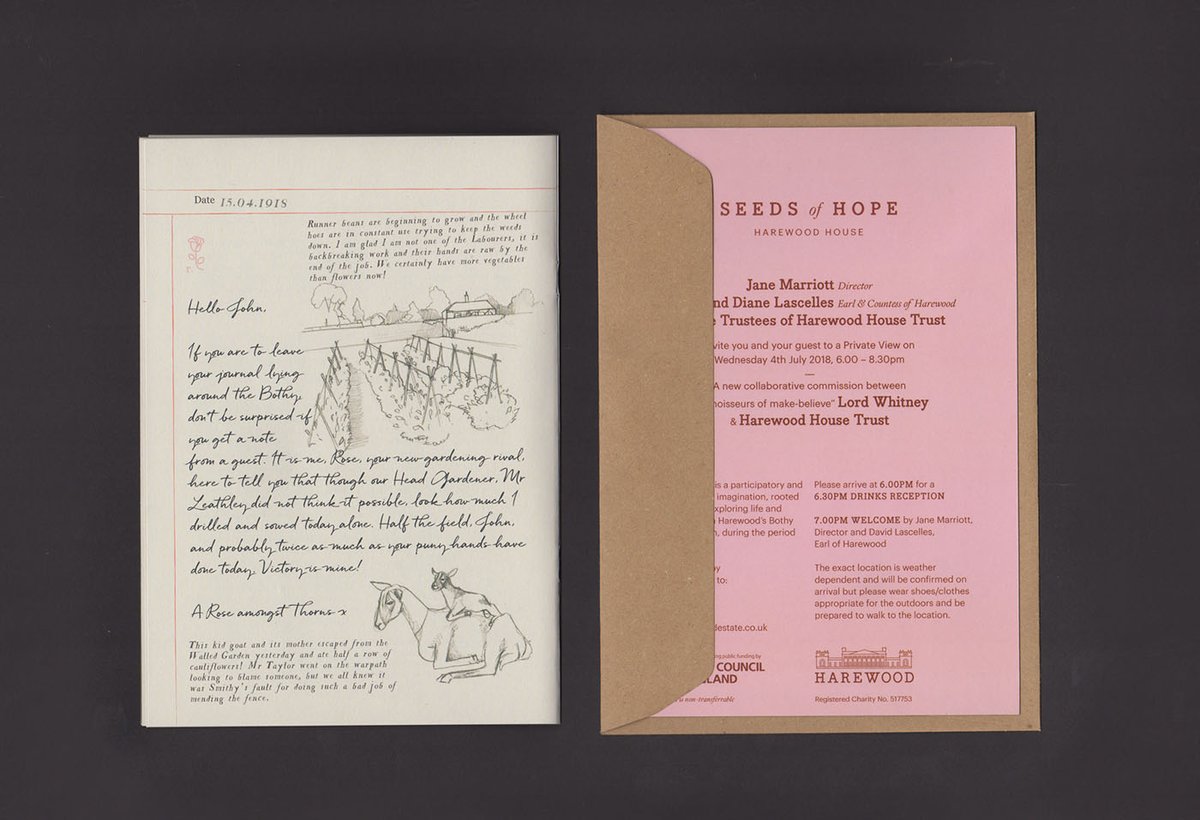 Date 15.04.1918
Runner beans are beginning to grow and the wheel
hoes are in constant use trying to keep the weeds
down. I am glad I am not one of the Labourers, it is
backbreaking work and their hands are raw by the
end of the job. We certainly have more vegetables
than flowers now!
Hello John,
If you are to leave
your journal lying
around the Bothy,
don't be surprised if
you get a note
from a guest. It is me, Rose, your new gardening rival,
here to tell you that though our Head Gardener, Mr
Leathley did not think it possible, look how much I
drilled and sowed today alone. Half the field, John,
and probably twice as much as your puny hands have
done today. Victory is mine!
A Rose amongst Thorns x
This kid goat and its mother escaped from the
Walled Garden yesterday and ate half a row of
cauliflowers! Mr Taylor went on the warpath
looking to blame someone, but we all knew it
was Smithy's fault for doing such a bad job of
mending the fence.
SEEDS of HOPE
HAREWOOD HOUSE
Jane Marriott Director
nd Diane Lascelles Earl & Countess of Harewood
e Trustees of Harewood House Trust
vite you and your guest to a Private View on
Wednesday 4th July 2018, 6.00 – 8.30pm
—
A new collaborative commission between
noisseurs of make-believe” Lord Whitney
& Harewood House Trust
is a participatory and
imagination, rooted
xploring life and
Harewood's Bothy
, during the period
by
to:
destate.co.uk
Please arrive at 6.00PM for a
6.30PM DRINKS RECEPTION
7.00PM WELCOME by Jane Marriott,
Director and David Lascelles,
Earl of Harewood
The exact location is weather
dependent and will be confirmed on
arrival but please wear shoes/clothes
appropriate for the outdoors and be
prepared to walk to the location.
ng public funding by
COUNCIL
LAND
is non-transferrable
HAREWOOD
Registered Charity No. 517753